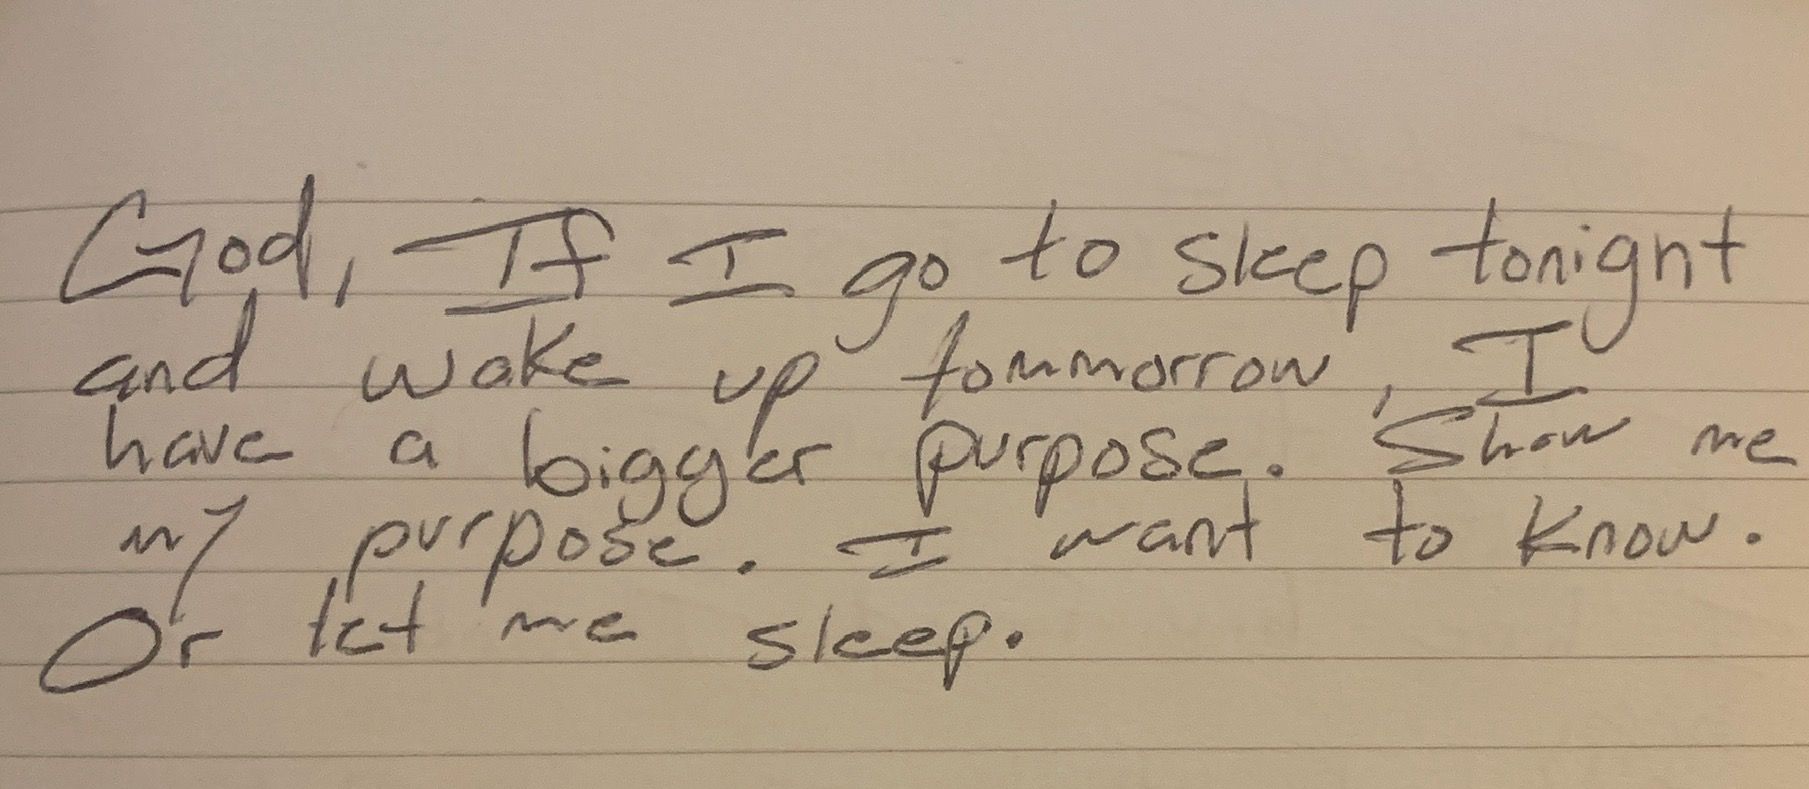 God, If I go to sleep tonight
and wake up tommorrow, I
have a bigger purpose. Show me
my purpose. I want to know.
Or let me sleep.